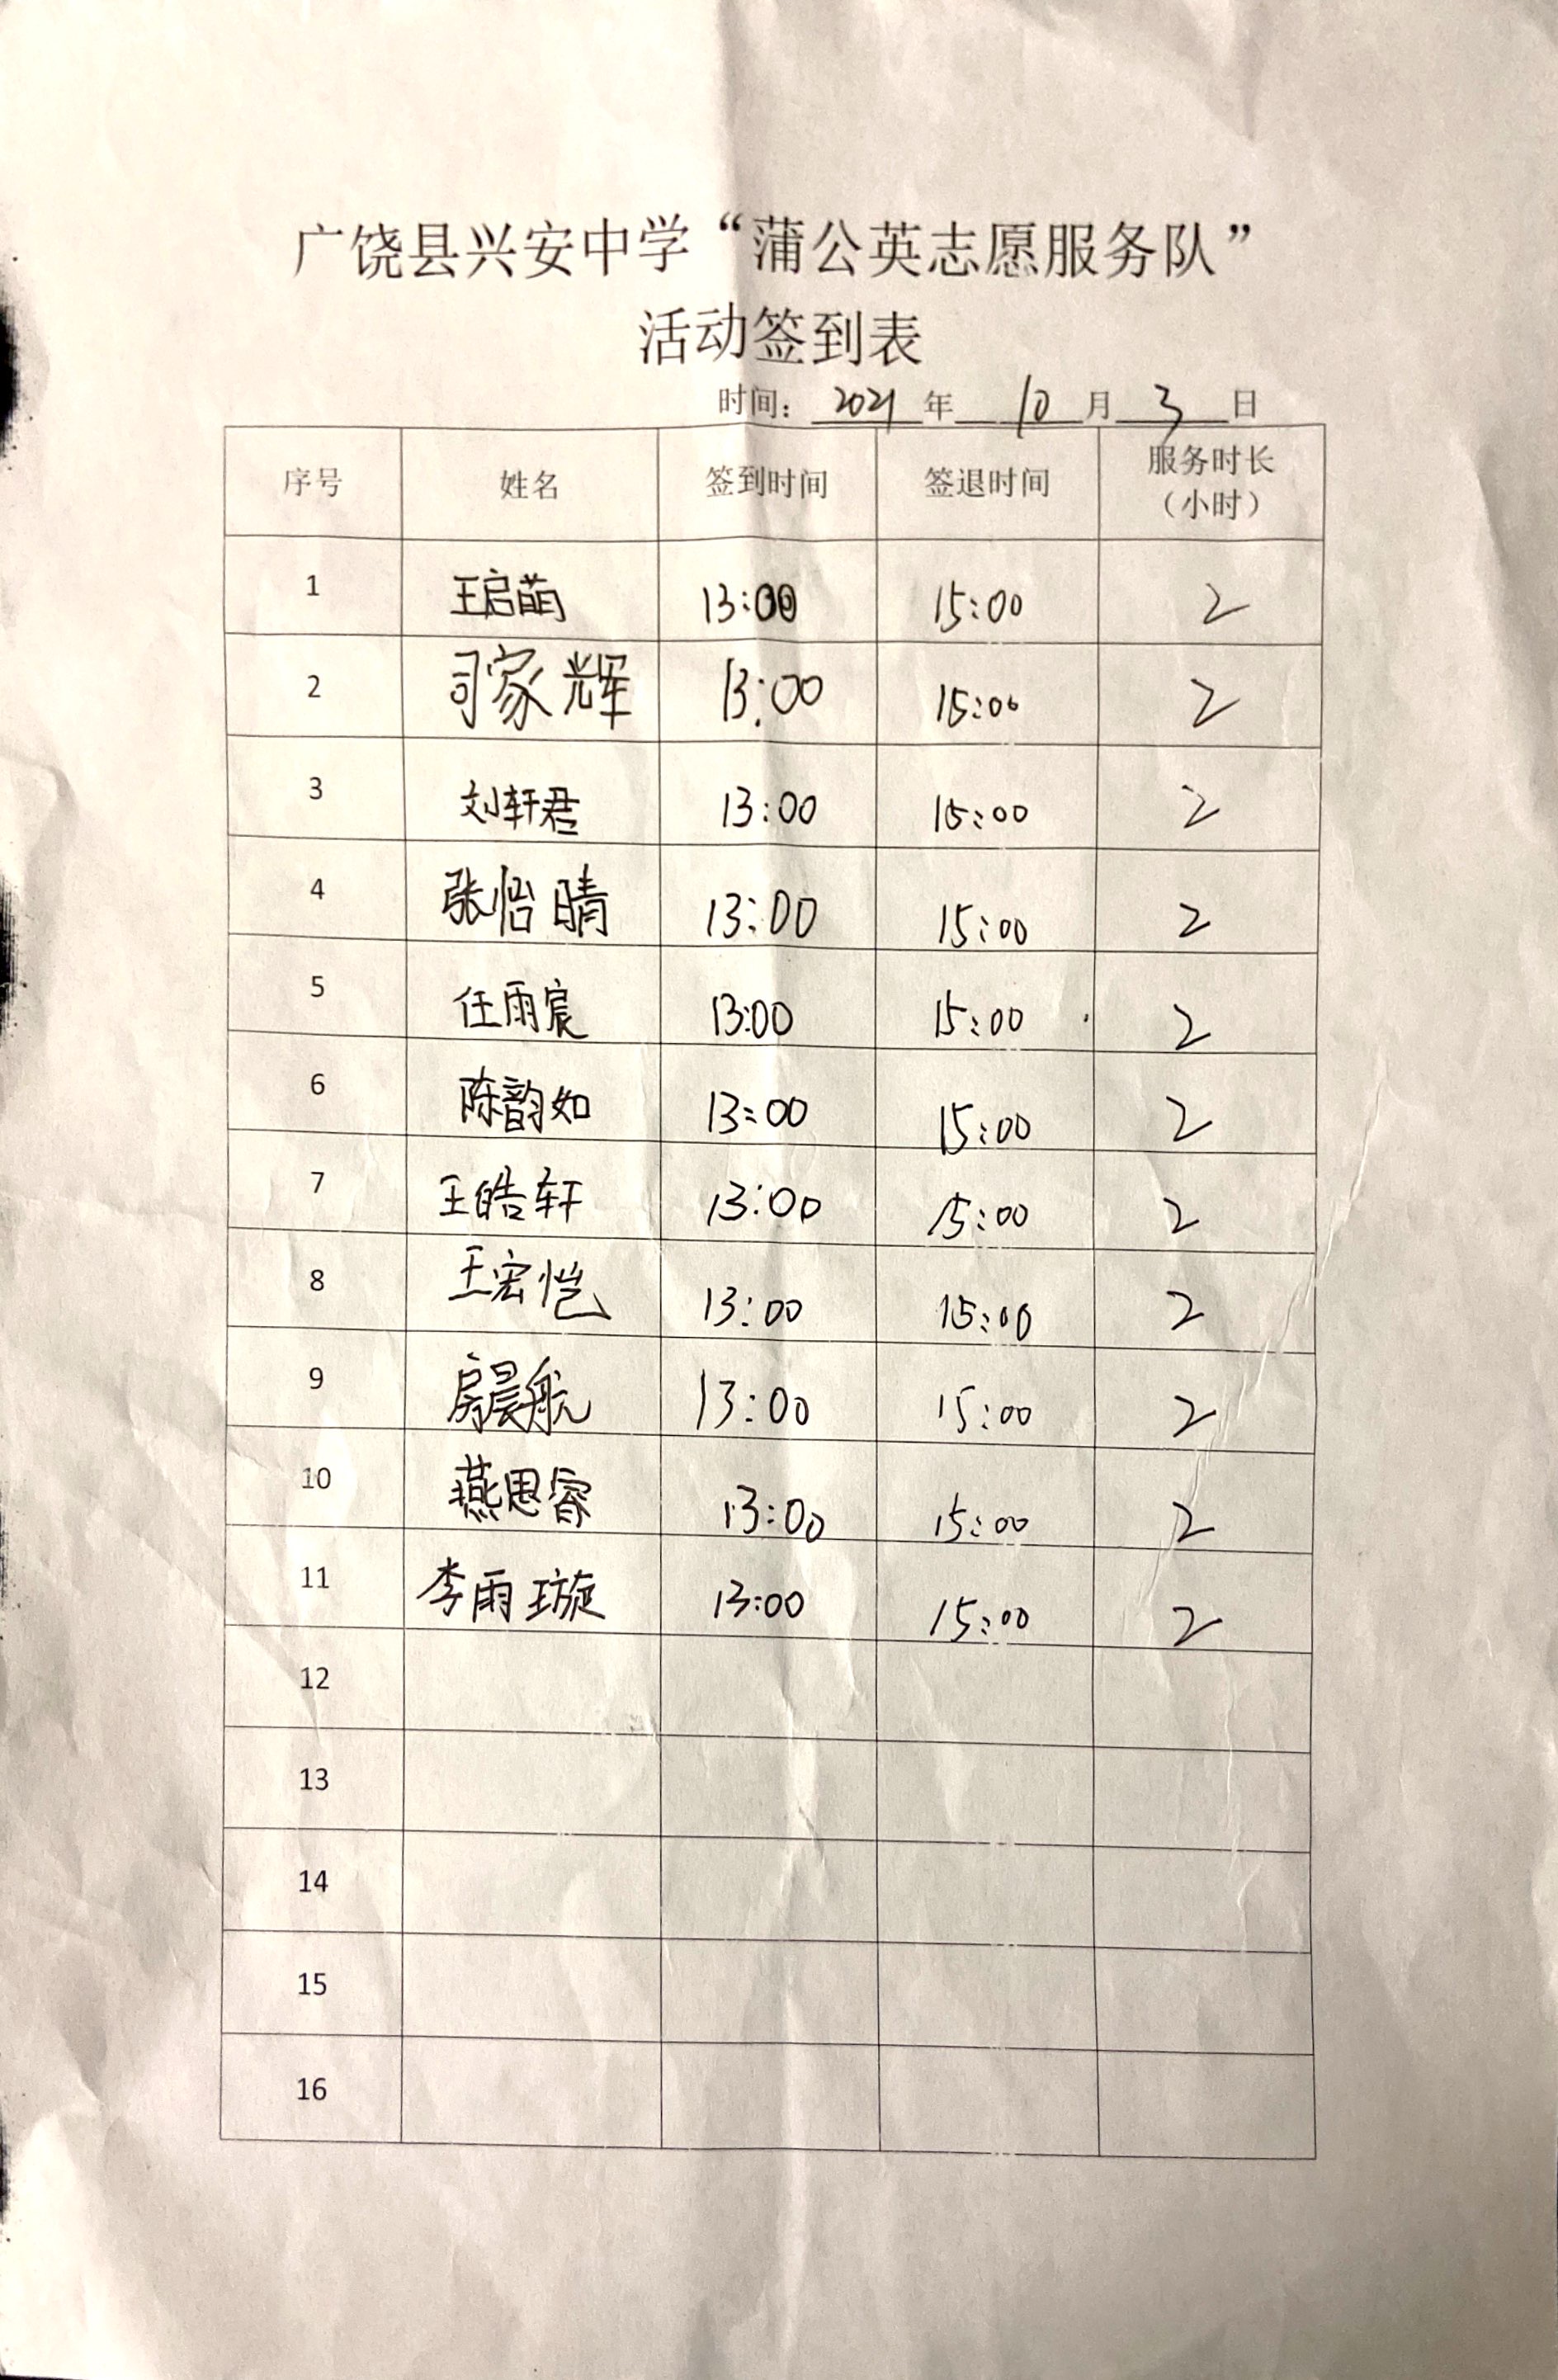 广饶县兴安中学“蒲公英志愿服务队”
活动签到表
时间：2021年10月3日
序号 姓名 签到时间 签退时间 服务时长（小时）
1 王启萌 13:00 15:00 2
2 司家辉 13:00 15:00 2
3 刘轩君 13:00 15:00 2
4 张怡晴 13:00 15:00 2
5 任雨宸 13:00 15:00 2
6 陈韵如 13:00 15:00 2
7 王皓轩 13:00 15:00 2
8 王宏恺 13:00 15:00 2
9 房晨航 13:00 15:00 2
10 燕思睿 13:00 15:00 2
11 李雨璇 13:00 15:00 2
12
13
14
15
16